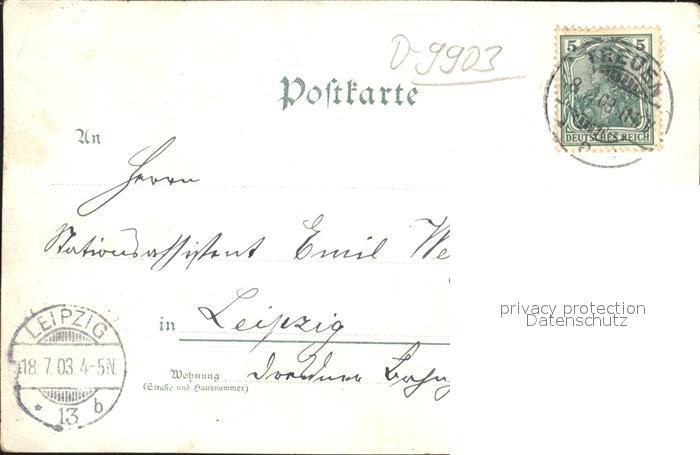 D-9903
5 5
TREUEN
DEUTSCHES REICH
Postkarte
An
Herrn
Stationsassistent Emil We
in Leipzig
privacy protection
Datenschutz
Wohnung
(Straße und Hausnummer)
Dresdner Bahn
LEIPZIG
18.7.03.4-5N.
* 13 b